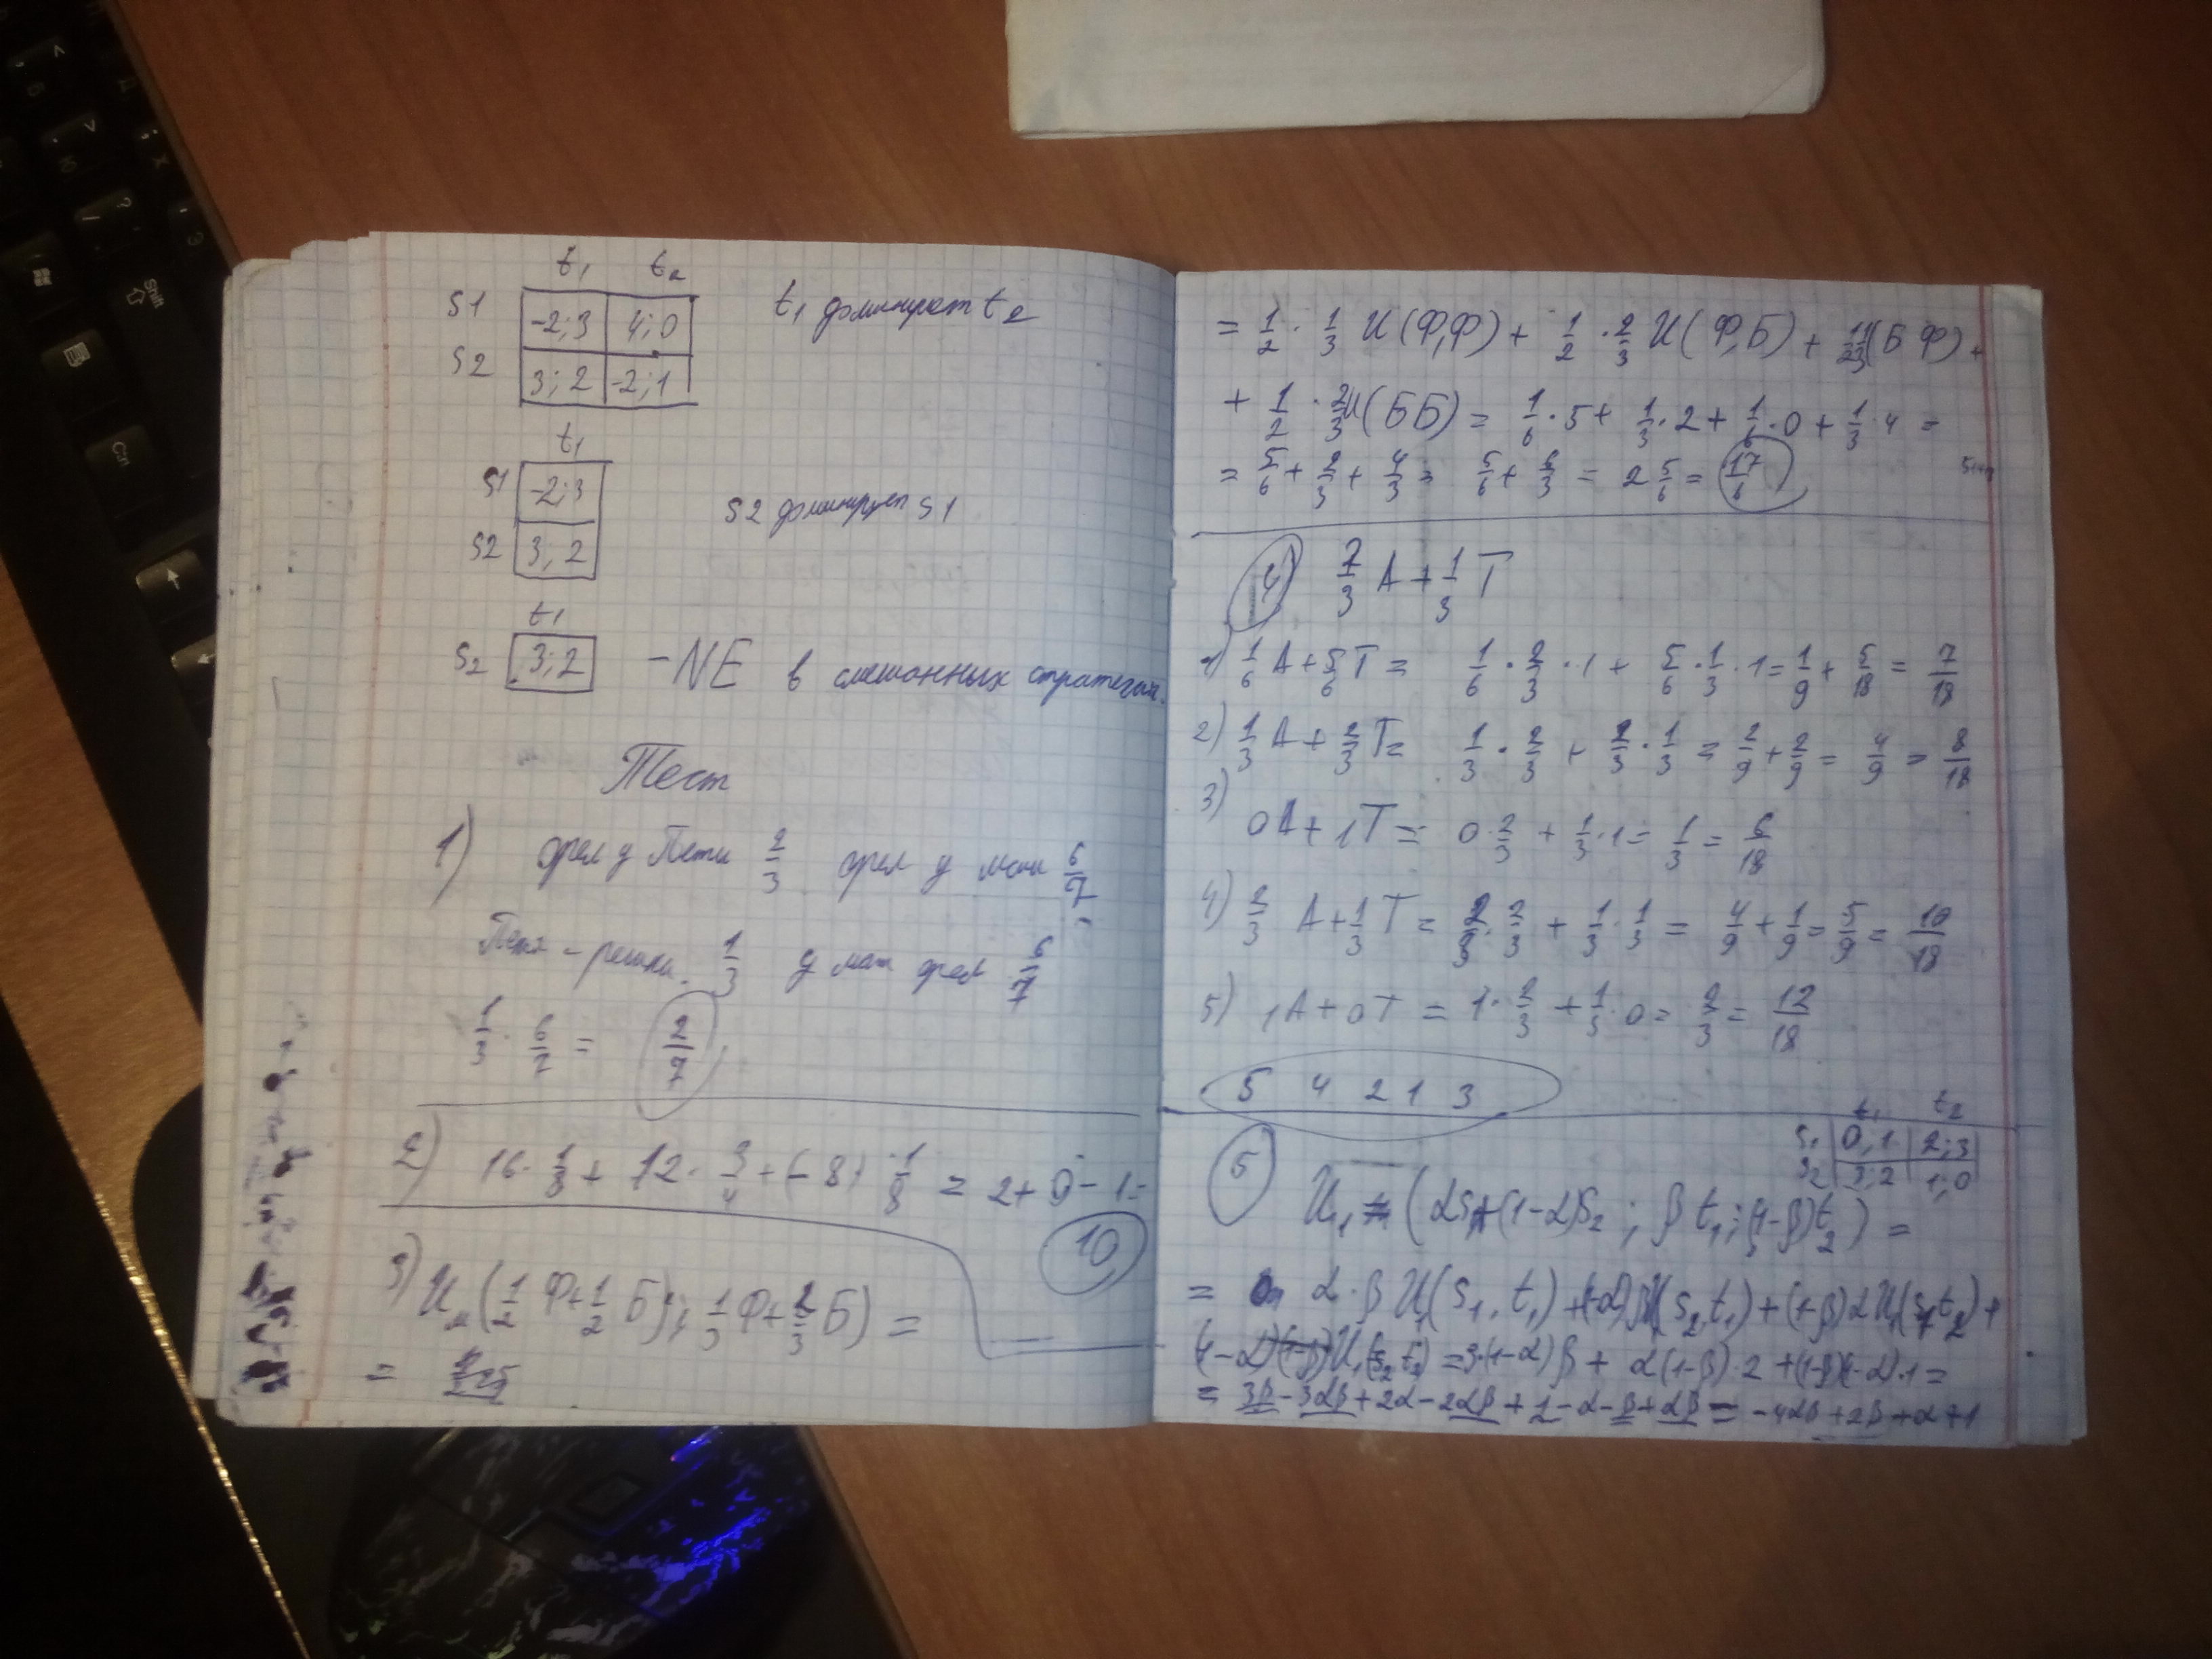 t₁ t₂
S1 -2;3 4;0 t₁ доминирует t₂
S2 3;2 -2;1
t₁
S1 -2;3
S2 3,2 S2 доминирует S1
t₁
S₂ 3;2 - NE в смешанных стратегиях.
Тест
1) орел у Пети 2/3 орел у 6/7
Петя - решка. 1/3 у орел 6/7
1/3 · 6/7 = 2/7
2) 16 · 1/8 + 12 · 3/4 + (-8) · 1/8 = 2 + 9 - 1 =
10
3) Uм(1/2 Ф + 1/2 Б); 1/3 Ф + 2/3 Б) =
=
= 1/2 · 1/3 U(Ф,Ф) + 1/2 · 2/3 U(Ф,Б) + 1/2 1/3 (Б Ф) +
+ 1/2 · 2/3 U(ББ) = 1/6 · 5 + 1/3 · 2 + 1/6 · 0 + 1/3 · 4 =
= 5/6 + 2/3 + 4/3 = 5/6 + 6/3 = 2 5/6 = 17/6
4 2/3 A + 1/3 T
1) 1/6 A + 5/6 T = 1/6 · 2/3 · 1 + 5/6 · 1/3 · 1 = 1/9 + 5/18 = 7/18
2) 1/3 A + 2/3 T = 1/3 · 2/3 + 2/3 · 1/3 = 2/9 + 2/9 = 4/9 = 8/18
3) 0A + 1T = 0 · 2/3 + 1/3 · 1 = 1/3 = 6/18
4) 2/3 A + 1/3 T = 2/3 · 2/3 + 1/3 · 1/3 = 4/9 + 1/9 = 5/9 = 10/18
5) 1A + 0T = 1 · 2/3 + 1/3 · 0 = 2/3 = 12/18
5 4 2 1 3
t₁ t₂
S₁ 0,1 2;3
S₂ 3;2 1;0
5 U₁ = (αS₁+(1-α)S₂; βt₁; (1-β)t₂) =
= α·βU₁(S₁,t₁) + (1-α)βU(S₂,t₁) + (1-β)αU₁(S₁t₂) +
(1-α)(1-β)U₁(S₂t₂) = 3·(1-α)β + α(1-β)·2 + (1-β)(1-α)·1 =
= 3β - 3αβ + 2α - 2αβ + 1 - α - β + αβ = -4αβ + 2β + α + 1